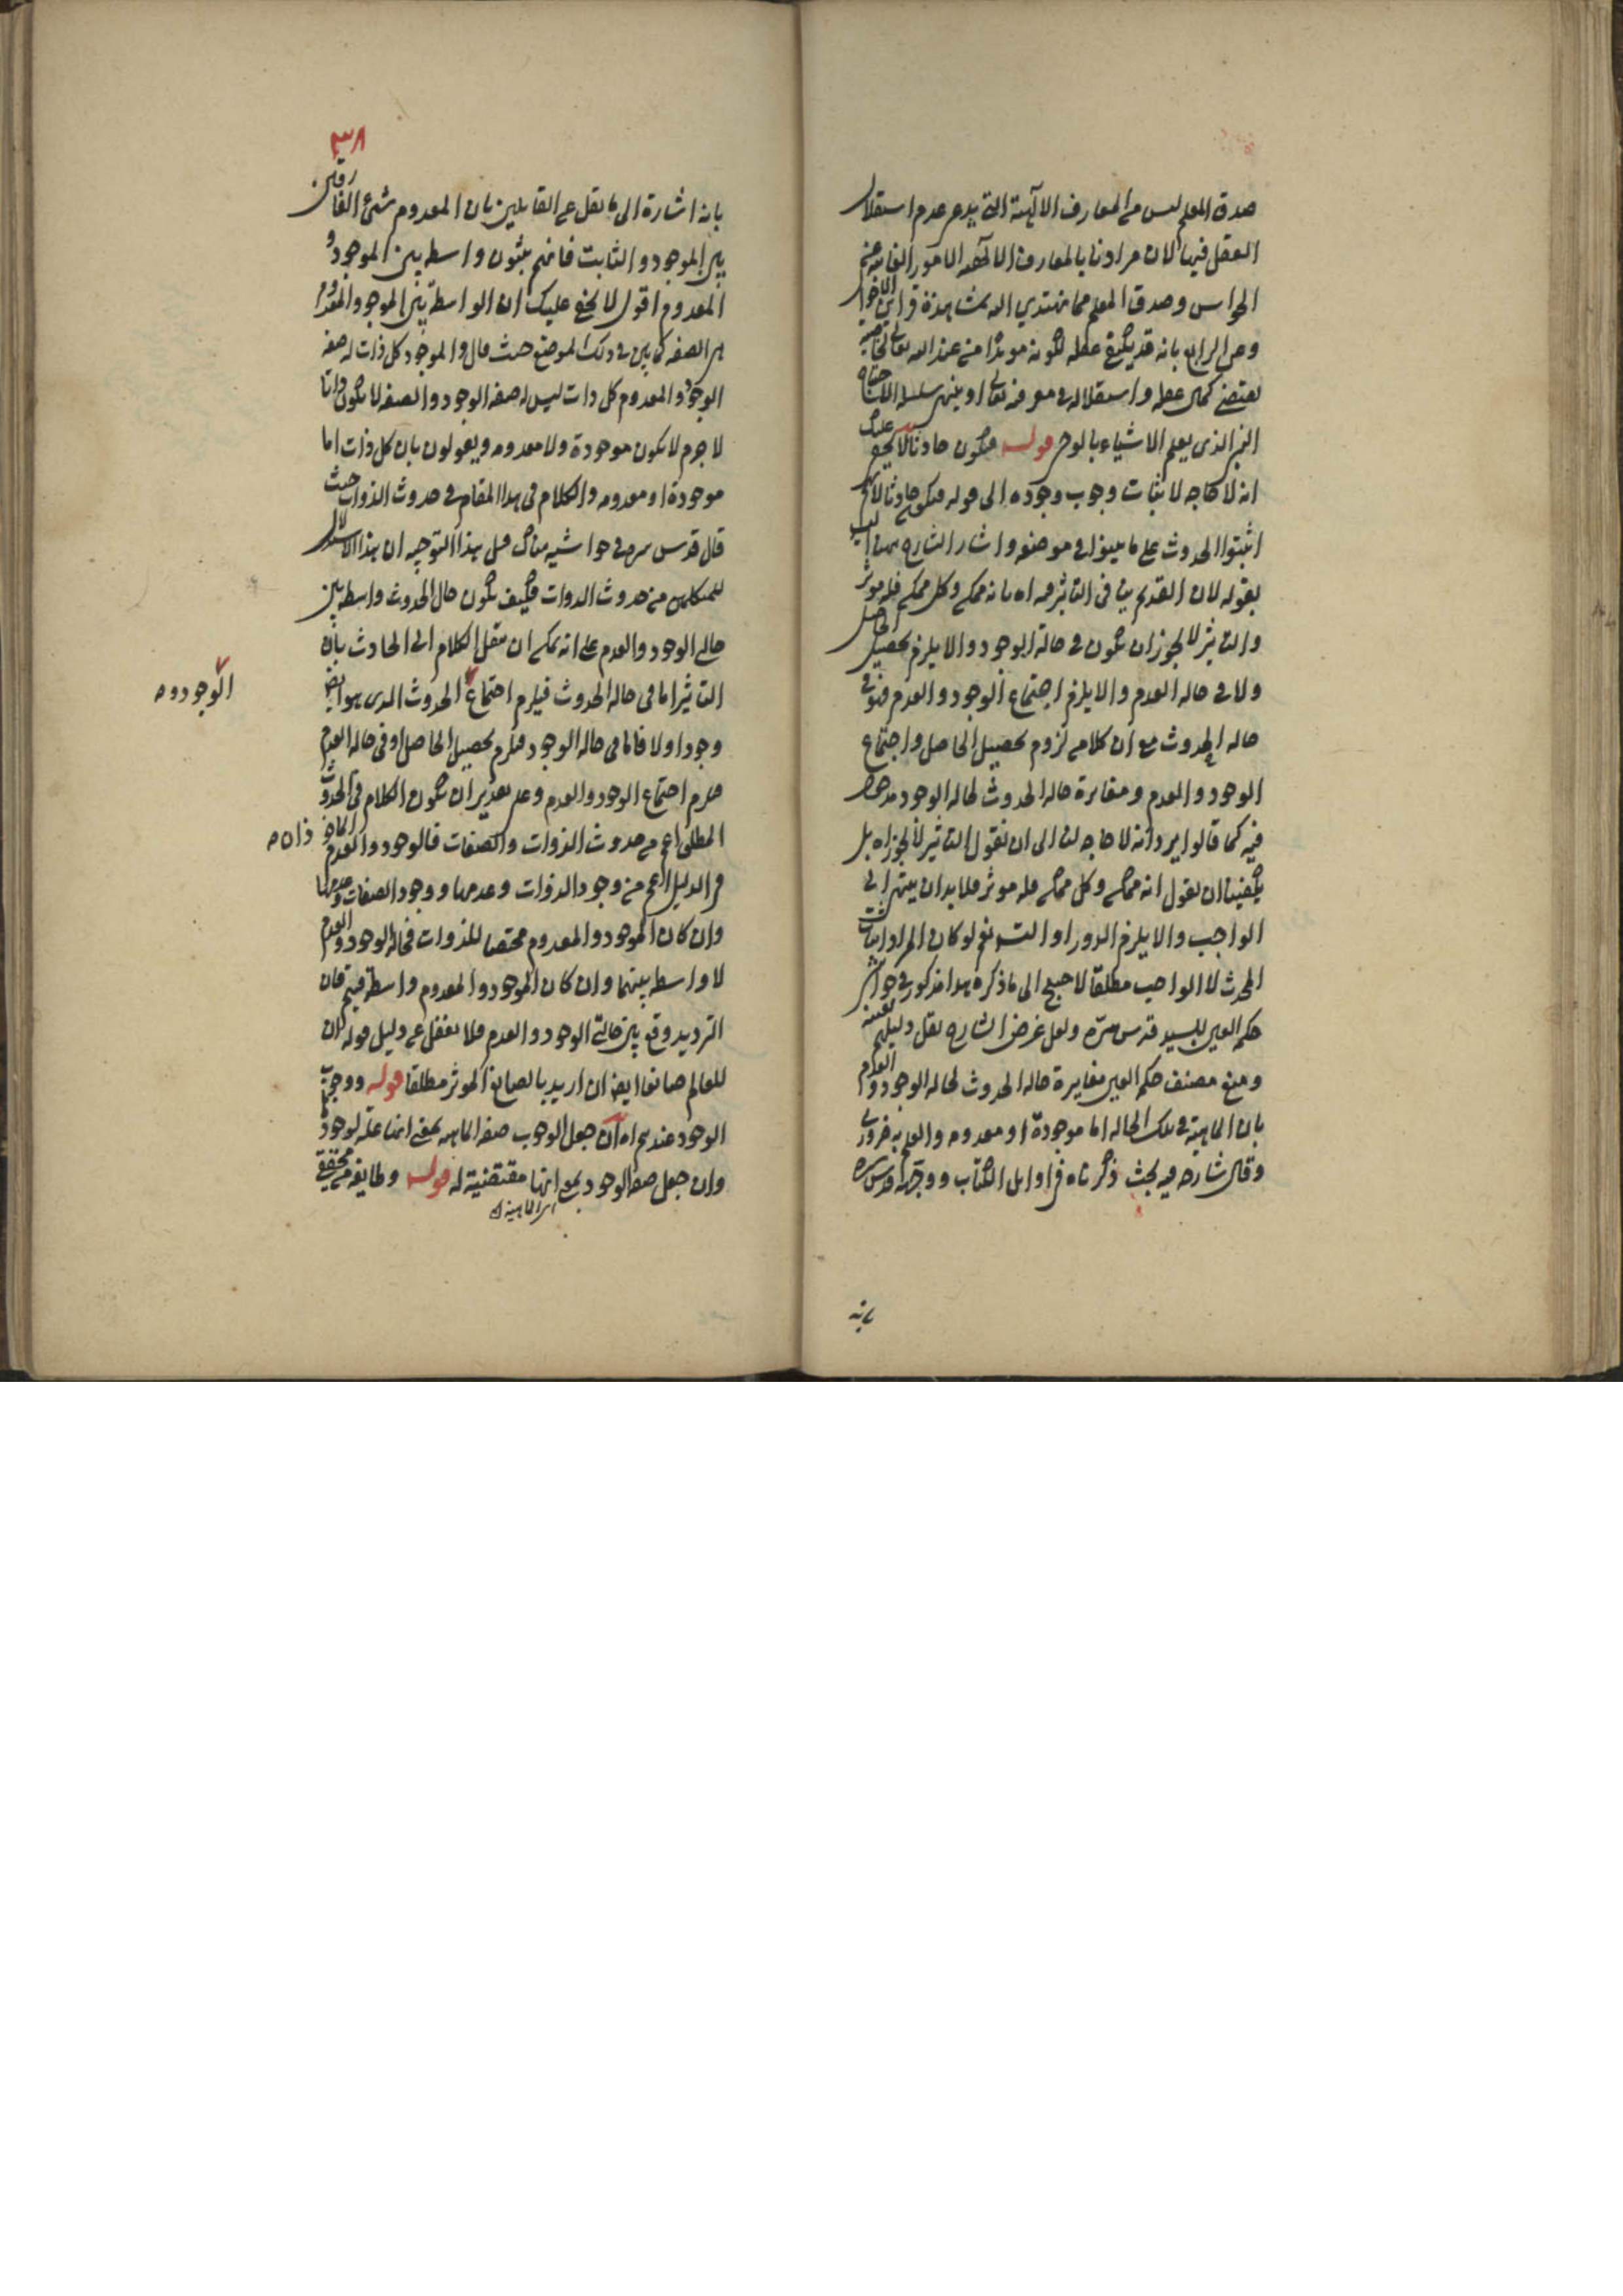 صدق المعلم ليس من المعارف الالهية التى يدعى عدم استقلال
العقل فيها لان مرادنا بالمعارف الالهيه الامور الغائبة عن
الحواس وصدق المعلم مما نهتدي اليه بمشاهدة قراين الاحوال
وعن الرابع بانه قد يكفى عقله لكونه مويدا من عند الله تعالى
يقتضى كمال عقله واستقلاله فى معرفته تعالى او ينتهى سلسلة الاحتياج
الذى يعلم الاشياء بالوحى قوله فيكون حادثا لا يخفى عليك
انه لا حاجه لاثبات وجوب وجوده الى قوله فيكون حادثا
اثبتوا الحدوث على ما فى موضعه واشار الشارح
بقوله لان القديم ينافى التاثير فيه اه بانه ممكن وكل ممكن فله موثر
والتاثير لا يجوز ان يكون فى حالة الوجود والا يلزم تحصيل الحاصل
ولا فى حاله العدم والا يلزم اجتماع الوجود والعدم فهو فى
حاله الحدوث مع ان كلا من لزوم تحصيل الحاصل واجتماع
الوجود والعدم ومغايرة حاله الحدوث لحاله الوجود
فيه كما قالوا يرد انه لا حاجه لنا الى ان نقول التاثير لا يجوز اه بل
يكفينا ان نقول انه ممكن وكل ممكن فله موثر فلا بد ان ينتهى الى
الواجب والا يلزم الدور او التس نعم لو كان المراد اثبات
المحدث لا الواجب مطلقا لاحتيج الى ما ذكره هذا مذكور فى حواشى
حكمه العين للسيد قدس سره ولعل غرض الشارح نقل دليلهم بعينه
ومنع مصنف حكمه العين مغايرة حاله الحدوث لحاله الوجود والعدم
بان الماهية فى تلك الحاله اما موجودة او معدومه والعلم به ضرورى
وقال شارحه فيه بحث ذكرناه فى اوايل الكتاب ووجهه قدس سره
بانه
٣٨
بانه اشارة الى ما نقل عن القايلين بان المعدوم شئ الفارقين
بين الموجود والثابت فانهم يثبتون واسطه بين الموجود و
المعدوم اقول لا يخفى عليك ان الواسطة بين الموجود والمعدوم
هى الصفه كما بين فى ذلك الموضع حيث قال والموجود كل ذات له صفه
الوجود والمعدوم كل ذات ليس له صفه الوجود والصفه لا يكون ذاتا
لا جرم لا يكون موجودة ولا معدومه ويقولون بان كل ذات اما
موجودة او معدومه والكلام فى هذا المقام فى حدوث الذوات حيث
قال قدس سره فى حواشيه هناك قبل هذا التوجيه ان هذا الاستدلال
للمتكلمين من حدوث الذوات فكيف يكون حال الحدوث واسطه بين
حالى الوجود والعدم على انه يمكن ان ينقل الكلام الى الحادث بان
التاثير اما فى حاله الحدوث فيلزم اجتماع الحدوث الذى هو ايضا
الوجودو
وجود اولا فاما فى حاله الوجود فيلزم تحصيل الحاصل او فى حاله العدم
فيلزم اجتماع الوجود والعدم وعلى تقدير ان يكون الكلام فى الحدوث
المطلق اعم من حدوث الذوات والصفات فالوجود والعدم الماخوذان
ذان
فى الدليل اعم من وجود الذوات وعدمها ووجود الصفات وعدمها
وان كان الموجود والمعدوم مختصا للذوات فحاله الوجود والعدم
لا واسطه بينهما وان كان الموجود والمعدوم واسطة فيهم فان
الترديد وقع بين حالتى الوجود والعدم فلا تغفل عن دليل قوله لان
للعالم صانعا ايضا ان اريد بالصانع الموثر مطلقا قوله ووجوب
الوجود عندهم اه ان جعل الوجوب صفه الماهيه بمعنى انها علة لوجودها
وان جعل صفه الوجود بمعنى انها مقتضية له قوله وطايفه من محققى
اى الماهية